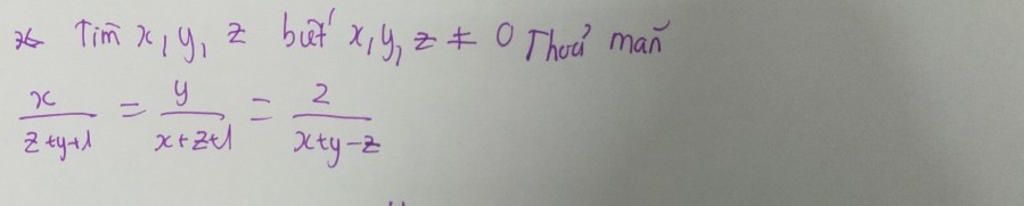 * Tìm x, y, z biết x, y, z ≠ 0 Thoả mãn
x/(z+y+1) = y/(x+z+1) = 2/(x+y-z)